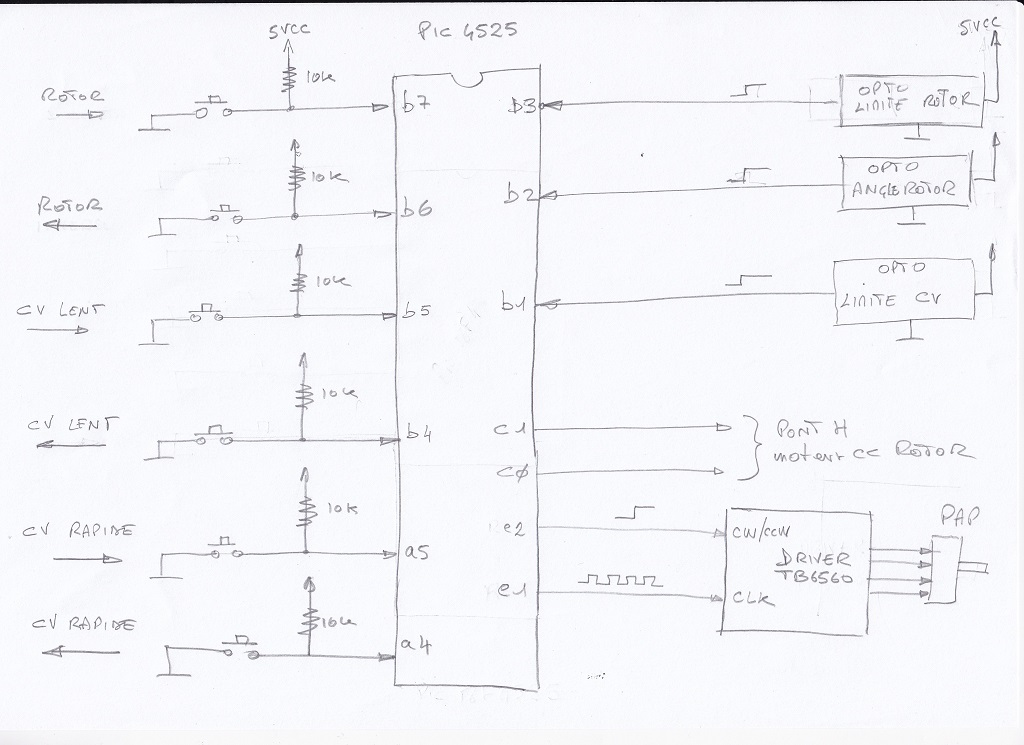 5VCC
PIC 4525
5VCC
ROTOR
10k
b7
b3
OPTO
LIMITE ROTOR
ROTOR
10k
b6
b2
OPTO
ANGLE ROTOR
CV LENT
10k
b5
b1
OPTO
LIMITE CV
CV LENT
10k
b4
c1
c0
PONT H
moteur CC ROTOR
CV RAPIDE
10k
a5
e2
CW/CCW
DRIVER
TB6560
PAP
e1
CLK
CV RAPIDE
10k
a4